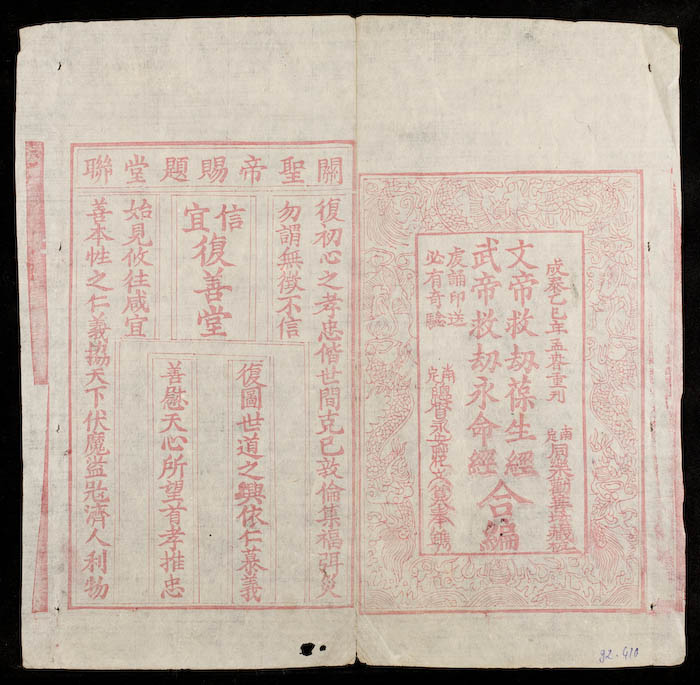 成泰乙巳年孟春重刊
南定同樂勸善壇藏板
文帝救劫葆生經
武帝救劫永命經
合編
虔誦印送
必有奇驗
南定
奉鐫
關聖帝賜題堂聯
復初心之孝忠偕世間克己敦倫集福弭災
勿謂無徵不信
信宜
復善堂
始見攸往咸宜
善本性之仁義協天下伏魔盪寇濟人利物
復圖世道之興依仁慕義
善慰天心所望首孝推忠
92.410